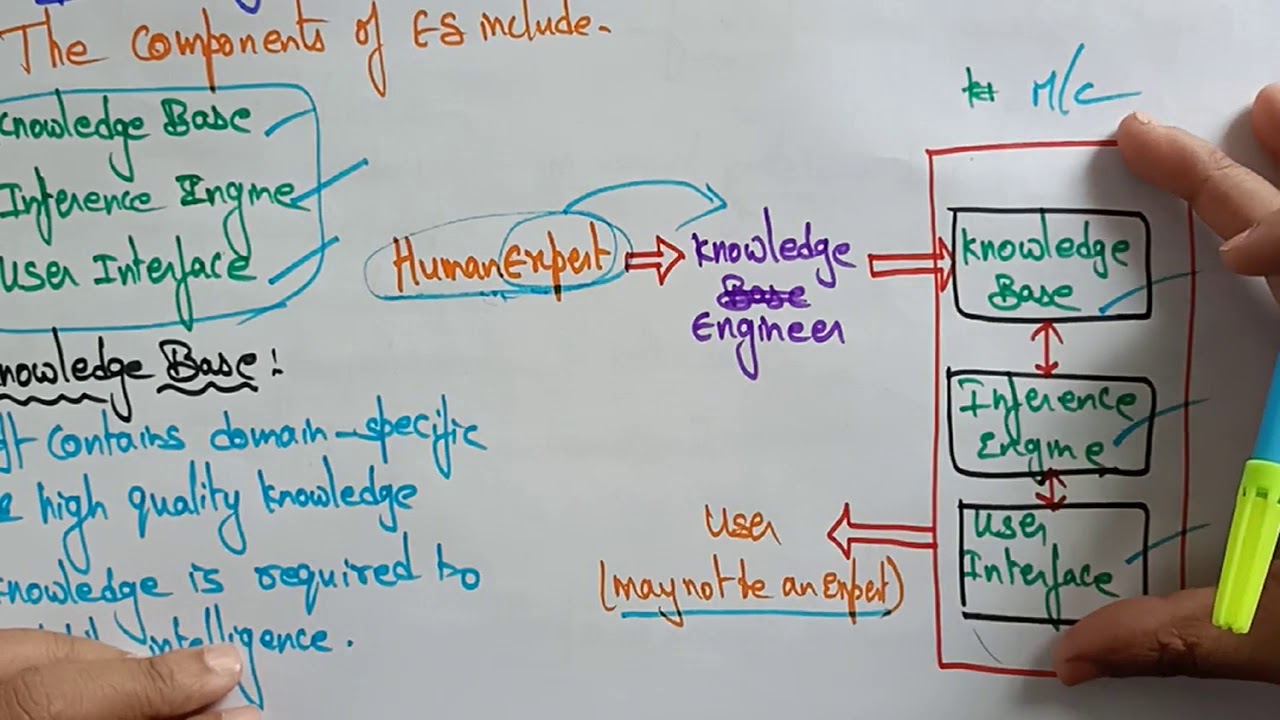 The Components of ES include.
Knowledge Base
Inference Engine
User Interface
Knowledge Base:
It contains domain-specific
& high quality knowledge
Knowledge is required to
intelligence.
Human Expert
Knowledge
Base
Engineer
M/C
Knowledge
Base
Inference
Engine
User
Interface
User
(may not be an Expert)